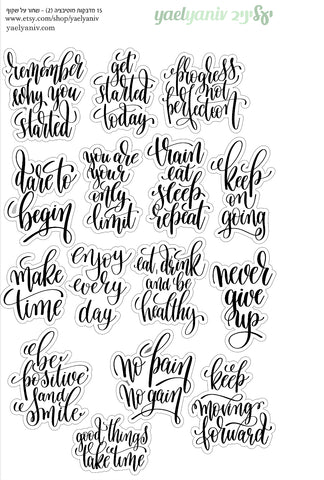 15 מדבקות מוטיבציה (2) - שחור על שקוף
www.etsy.com/shop/yaelyaniv
yaelyaniv.com
yaelyaniv יעל יניב
remember
why you
started
get
started
today
progress
not
perfection
dare to
begin
you are
your
only
limit
train
eat
sleep
repeat
keep
on
going
make
time
enjoy
every
day
eat, drink
and be
healthy
never
give
up
be
positive
and
smile
no pain
no gain
keep
moving
forward
good things
take time